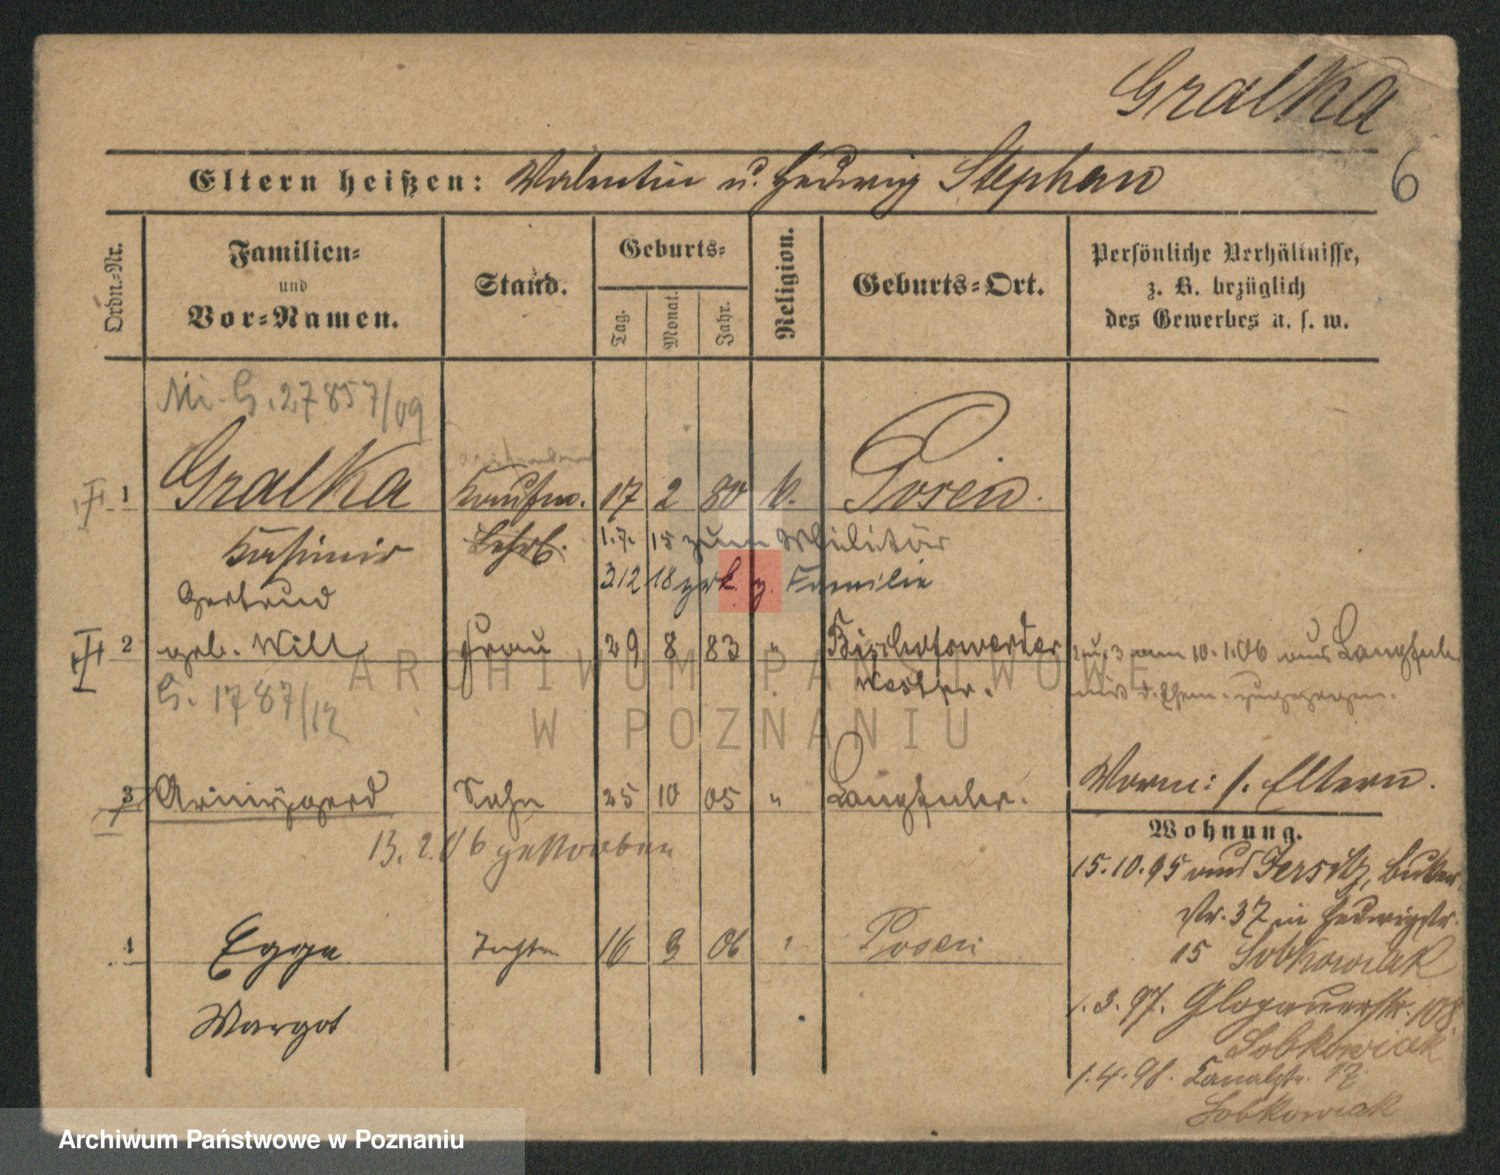 Gralka
6
Eltern heißen: Valentin u. Hedwig Stephan
Ordn.-Nr.
Familien-
und
Vor-Namen.
Stand.
Geburts-
Tag.
Monat.
Jahr.
Religion.
Geburts-Ort.
Persönliche Verhältnisse,
z. B. bezüglich
des Gewerbes u. s. w.
G. 27857/09
1 Gralka Kaufm. 17 2 80 k. Posen.
Kasimir Lehrl. 1.7. 15 zum Militär
3.12 18 zrk. z. Familie
Gertrud
2 geb. Will Frau 29 8 83 " Bischofswerder
Westpr.
zu 3 am 10.1.06 aus Langfuhr
mit d. Ehem. zugezogen.
G. 1787/12
Vorm: s. Eltern.
3 Irmgard 25 10 05 " Langfuhr.
13.2.06 gestorben
Wohnung.
15.10.95 aus Jersitz, Buker-
str. 37 in Hedwigstr.
15 Sobkowiak
4 Egga Tochter 16 9 06 " Posen
Margot
1.3.97. Glogauerstr. 108
Sobkowiak
1.4.98. Kanalstr. 17.
Sobkowiak
ARCHIWUM PAŃSTWOWE
W POZNANIU
Archiwum Państwowe w Poznaniu